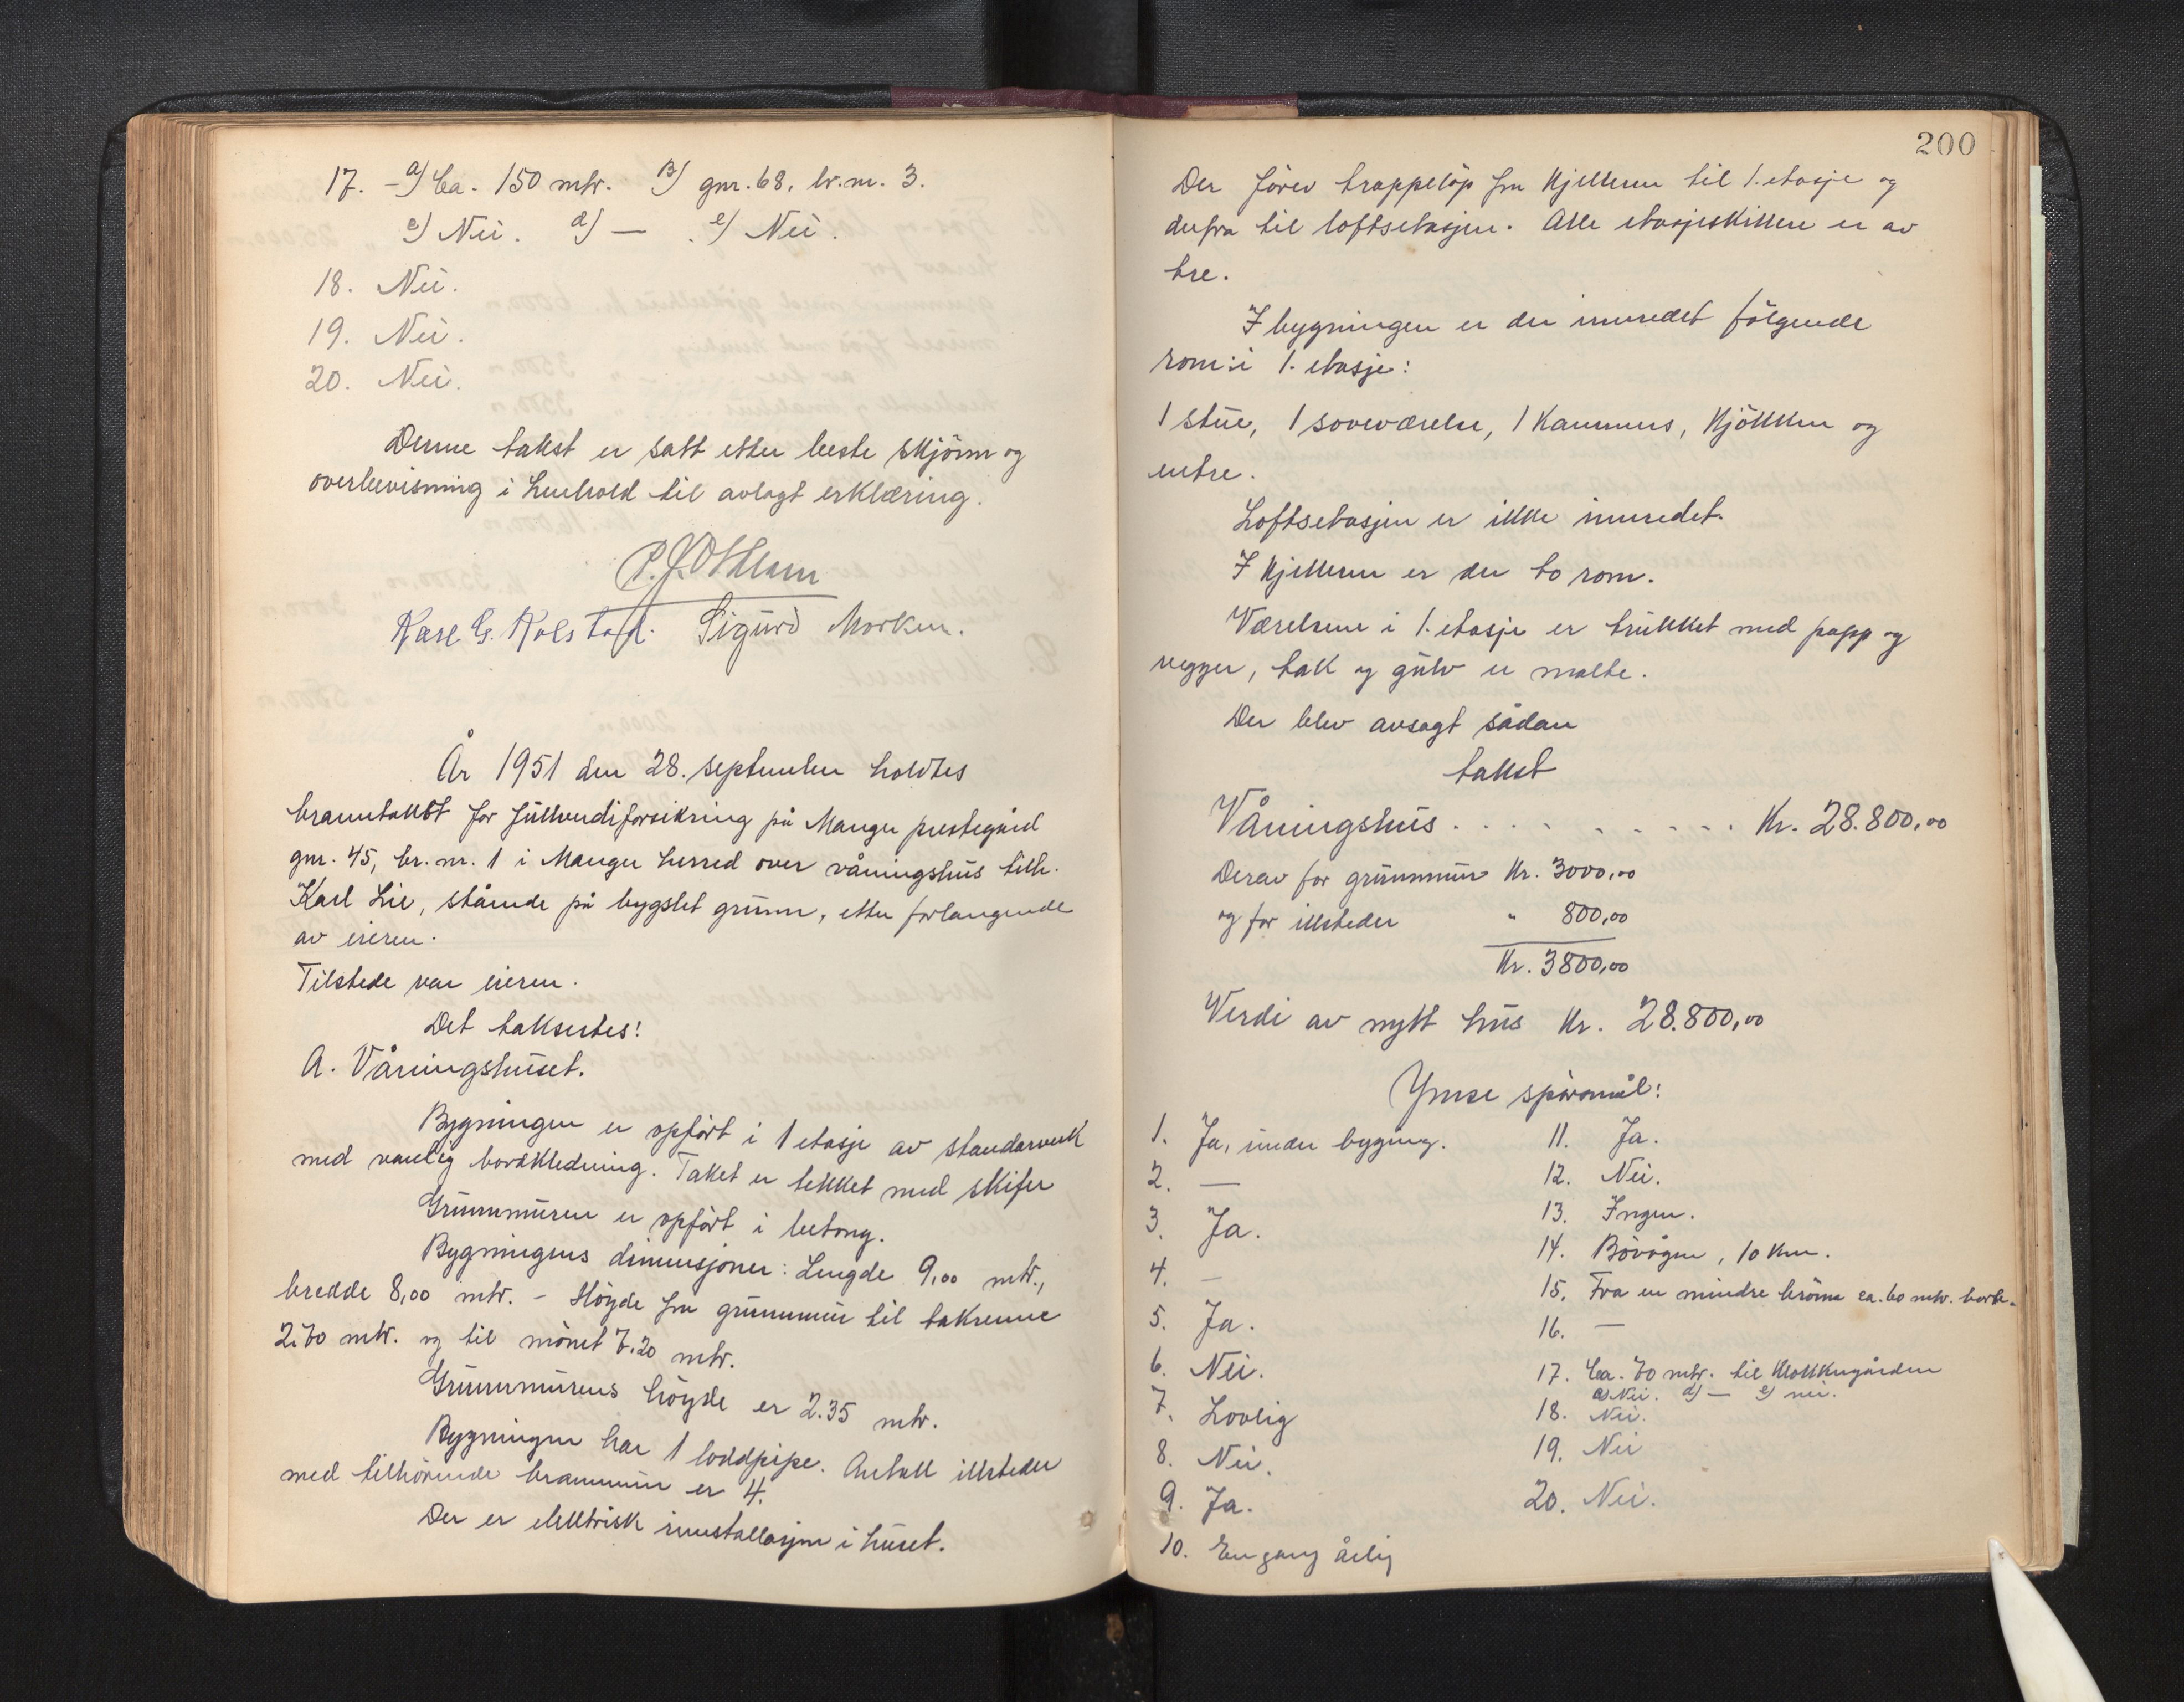 17. - a) Ca. 150 mtr. B) gnr. 68, br.nr. 3.
c) Nei. d) — . e) Nei.
18. Nei.
19. Nei.
20. Nei.
Denne takst er satt etter beste skjönn og
overbevisning i henhold til avlagt erklæring.
Karl G. Kolstad. Sigurd Morken.
År 1951 den 28. september holdtes
branntakst for fullverdiforsikring på Manger prestegård
gnr. 45, br. nr. 1 i Manger herred over våningshus tilh.
Karl Lie, stående på bygslet grunn, etter forlangende
av eieren.
Tilstede var eieren.
Det taksertes:
A. Våningshuset.
Bygningen er opfört i 1 etasje av standarverk
med vanlig bordkledning. Taket er tekket med skifer
Grunnmuren er opfört i betong.
Bygningens dimensjoner: Lengde 9,00 mtr.,
bredde 8,00 mtr. - Höyde fra grunnmur til takrenne
2.70 mtr. og til mönet 7.20 mtr.
Grunnmurens höyde er 2.35 mtr.
Bygningen har 1 loddpipe. Antall illsteder
med tilhörende brannmur er 4.
Der er elektrisk innstallasjon i huset.
200
Der förer trappelöp fra kjelleren til 1. etasje og
derfra til loftsetasjen. Alle etasjeskillere er av
tre.
I bygningen er der innredet fölgende
rom: i 1. etasje:
1 stue, 1 soveværelse, 1 kammers, kjökken og
entre.
Loftsetasjen er ikke innredet.
I kjelleren er der to rom.
Værelsene i 1. etasje er trukket med papp og
vegger, tak og gulv er malte.
Der blev avsagt sådan
takst
Våningshus . . . . . . . . . . Kr. 28.800,00
Derav for grunnmur Kr. 3000,00
og for illsteder " 800,00
Kr. 3800,00
Verdi av nytt hus Kr. 28.800,00
Ymse spörsmål:
1. Ja, under bygning.
2. —
3. Ja.
4. —
5. Ja.
6. Nei.
7. Lovlig
8. Nei.
9. Ja.
10. En gang årlig
11. Ja.
12. Nei.
13. Ingen.
14. Bövågen, 10 km.
15. Fra en mindre brönn ca. 60 mtr. borte.
16. —
17. Ca. 70 mtr. til Klokkergården
c) Nei. d) — e) nei.
18. Nei.
19. Nei
20. Nei.